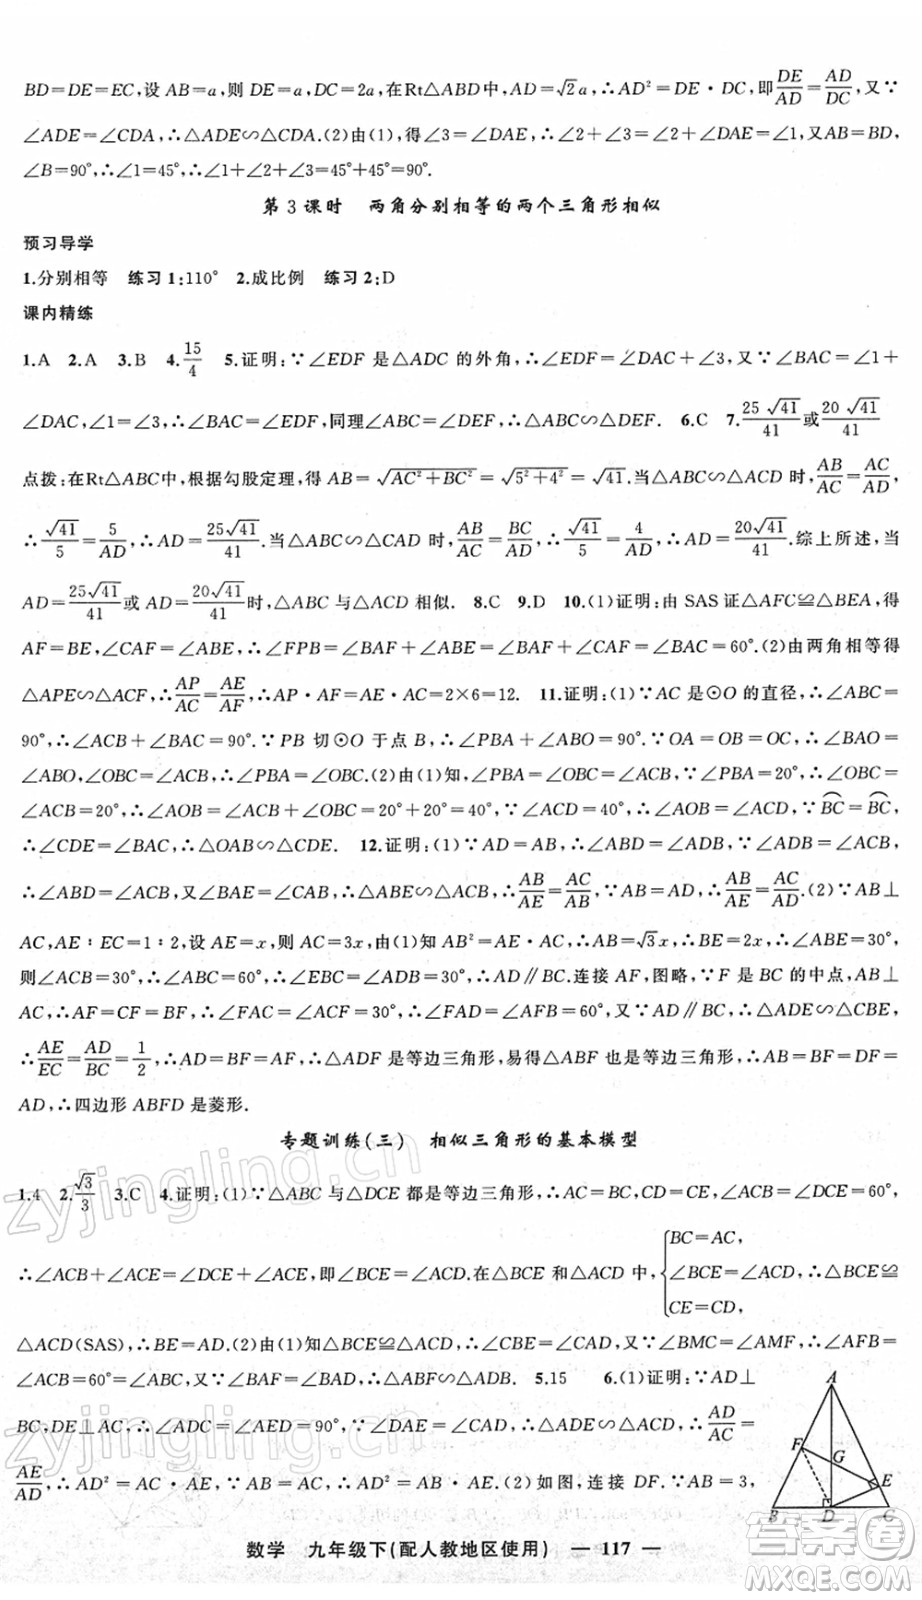 BD=DE=EC,设 AB=a,则 DE=a,DC=2a,在Rt△ABD中,AD=√2a,∴AD²=DE·DC,即DE/AD=AD/DC,又∵
∠ADE=∠CDA,∴△ADE∽△CDA.(2)由(1),得∠3=∠DAE,∴∠2+∠3=∠2+∠DAE=∠1,又AB=BD,
∠B=90°,∴∠1=45°,∴∠1+∠2+∠3=45°+45°=90°.
第3课时 两角分别相等的两个三角形相似
预习导学
1.分别相等 练习1:110° 2.成比例 练习2:D
课内精练
1.A 2.A 3.B 4.15/4 5.证明:∵∠EDF 是△ADC 的外角,∴∠EDF=∠DAC+∠3,又∵∠BAC=∠1+
∠DAC,∠1=∠3,∴∠BAC=∠EDF,同理∠ABC=∠DEF,∴△ABC∽△DEF. 6.C 7.25√41/41或20√41/41
点拨:在Rt△ABC中,根据勾股定理,得 AB=√(AC²+BC²)=√(5²+4²)=√41.当△ABC∽△ACD 时,AB/AC=AC/AD,
∴√41/5=5/AD,∴AD=25√41/41.当△ABC∽△CAD 时,AB/AC=BC/AD,∴√41/5=4/AD,∴AD=20√41/41.综上所述,当
AD=25√41/41或 AD=20√41/41时,△ABC 与△ACD 相似. 8.C 9.D 10.(1)证明:由 SAS 证△AFC≌△BEA,得
AF=BE,∠CAF=∠ABE,∴∠FPB=∠BAF+∠ABE=∠BAF+∠CAF=∠BAC=60°.(2)由两角相等得
△APE∽△ACF,∴AP/AC=AE/AF,∴AP·AF=AE·AC=2×6=12. 11.证明:(1)∵AC 是⊙O 的直径,∴∠ABC=
90°,∴∠ACB+∠BAC=90°.∵PB 切⊙O 于点 B,∴∠PBA+∠ABO=90°.∵OA=OB=OC,∴∠BAO=
∠ABO,∠OBC=∠ACB,∴∠PBA=∠OBC.(2)由(1)知,∠PBA=∠OBC=∠ACB,∵∠PBA=20°,∴∠OBC=
∠ACB=20°,∴∠AOB=∠ACB+∠OBC=20°+20°=40°,∵∠ACD=40°,∴∠AOB=∠ACD,∵⌒BC=⌒BC,
∴∠CDE=∠BAC,∴△OAB∽△CDE. 12.证明:(1)∵AD=AB,∴∠ABD=∠ADB,∵∠ADB=∠ACB,
∴∠ABD=∠ACB,又∠BAE=∠CAB,∴△ABE∽△ACB,∴AB/AE=AC/AB,∵AB=AD,∴AB/AE=AC/AD.(2)∵AB⊥
AC,AE∶EC=1∶2,设 AE=x,则 AC=3x,由(1)知 AB²=AE·AC,∴AB=√3x,∴BE=2x,∴∠ABE=30°,
则∠ACB=30°,∴∠ABC=60°,∴∠EBC=∠ADB=30°,∴AD∥BC.连接 AF,图略,∵F 是 BC 的中点,AB⊥
AC,∴AF=CF=BF,∴∠FAC=∠ACF=30°,∴∠FAD=∠AFB=60°,又∵AD∥BC,∴△ADE∽△CBE,
∴AE/EC=AD/BC=1/2,∴AD=BF=AF,∴△ADF 是等边三角形,易得△ABF 也是等边三角形,∴AB=BF=DF=
AD,∴四边形 ABFD 是菱形.
专题训练(三) 相似三角形的基本模型
1.4 2.√3/3 3.C 4.证明:(1)∵△ABC 与△DCE 都是等边三角形,∴AC=BC,CD=CE,∠ACB=∠DCE=60°,
∴∠ACB+∠ACE=∠DCE+∠ACE,即∠BCE=∠ACD.在△BCE 和△ACD 中,{BC=AC, ∠BCE=∠ACD, CE=CD, ∴△BCE≌
△ACD(SAS),∴BE=AD.(2)由(1)知△BCE≌△ACD,∴∠CBE=∠CAD,又∵∠BMC=∠AMF,∴∠AFB=
∠ACB=60°=∠ABC,又∵∠BAF=∠DAB,∴△ABF∽△ADB. 5.15 6.(1)证明:∵AD⊥
BC,DE⊥AC,∴∠ADC=∠AED=90°,∵∠DAE=∠CAD,∴△ADE∽△ACD,∴AD/AC=
AE/AD,∴AD²=AC·AE,∵AB=AC,∴AD²=AB·AE.(2)如图,连接 DF.∵AB=3,
A
F
G
E
B
D
C
数学 九年级下(配人教地区使用) — 117 —
zyjingling.com
zyjingling.cn
答案圈
MXQE.COM